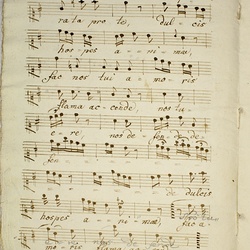 rata pro te, dulcis
hospes a - ni - mae,
fac nos tui a - mo - ris
flama accende, nos tu -
e - re, nos de - fen - de de -
fen - - - - - -
- - - - de dulcis
hospes a - ni - mae, fac a -
mo - ris flama